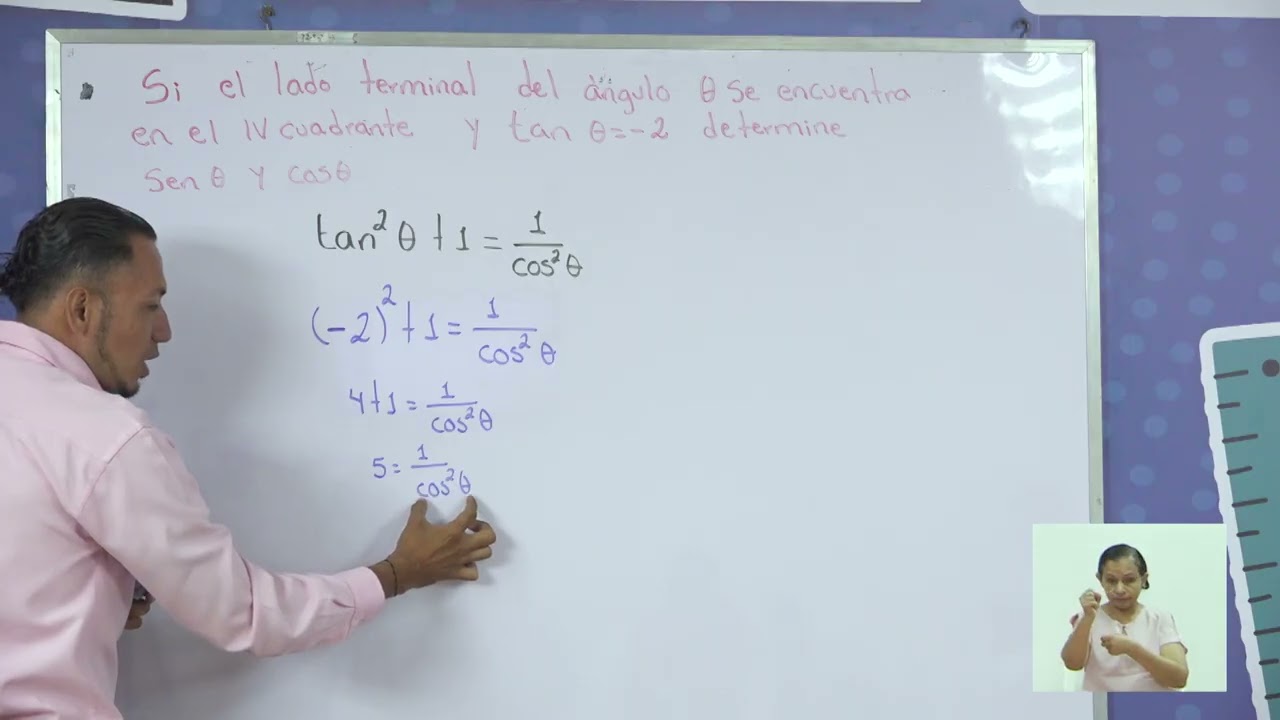 Si el lado terminal del ángulo θ se encuentra
en el IV cuadrante y tan θ = -2 determine
Sen θ y cos θ
tan² θ + 1 = 1/cos² θ
(-2)² + 1 = 1/cos² θ
4 + 1 = 1/cos² θ
5 = 1/cos² θ